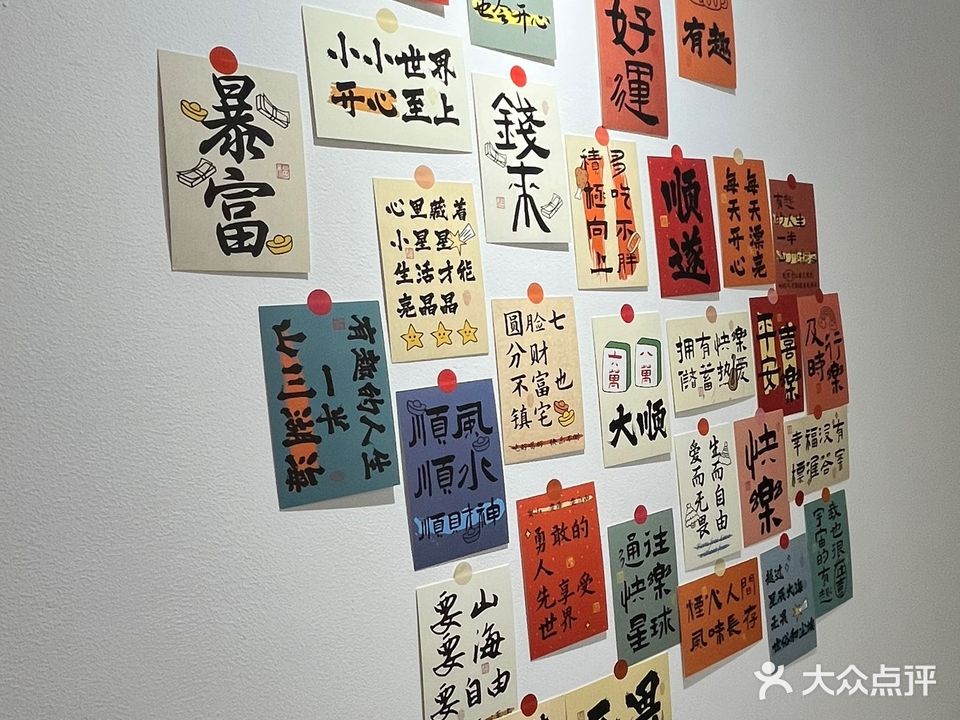 也会开心
好運
有趣
小小世界
开心至上
暴富
錢来
多吃不胖
積極向上
順遂
每天漂亮
每天开心
心里藏着
小星星
生活才能
亮晶晶
有趣的人生
一半
山川湖海
圆脸七
分财
不富也
镇宅
六萬
八萬
大順
拥有快樂
儲蓄热爱
喜樂
平安
行樂
及時
順風
順水
順財神
生而自由
爱而无畏
快樂
幸福没有
標准答
勇敢的
人
先享受
世界
通往
快樂
星球
煙火人間
風味長存
我也很在意
宇宙的有趣
星辰大海
要山
要海
要自由
大众点评